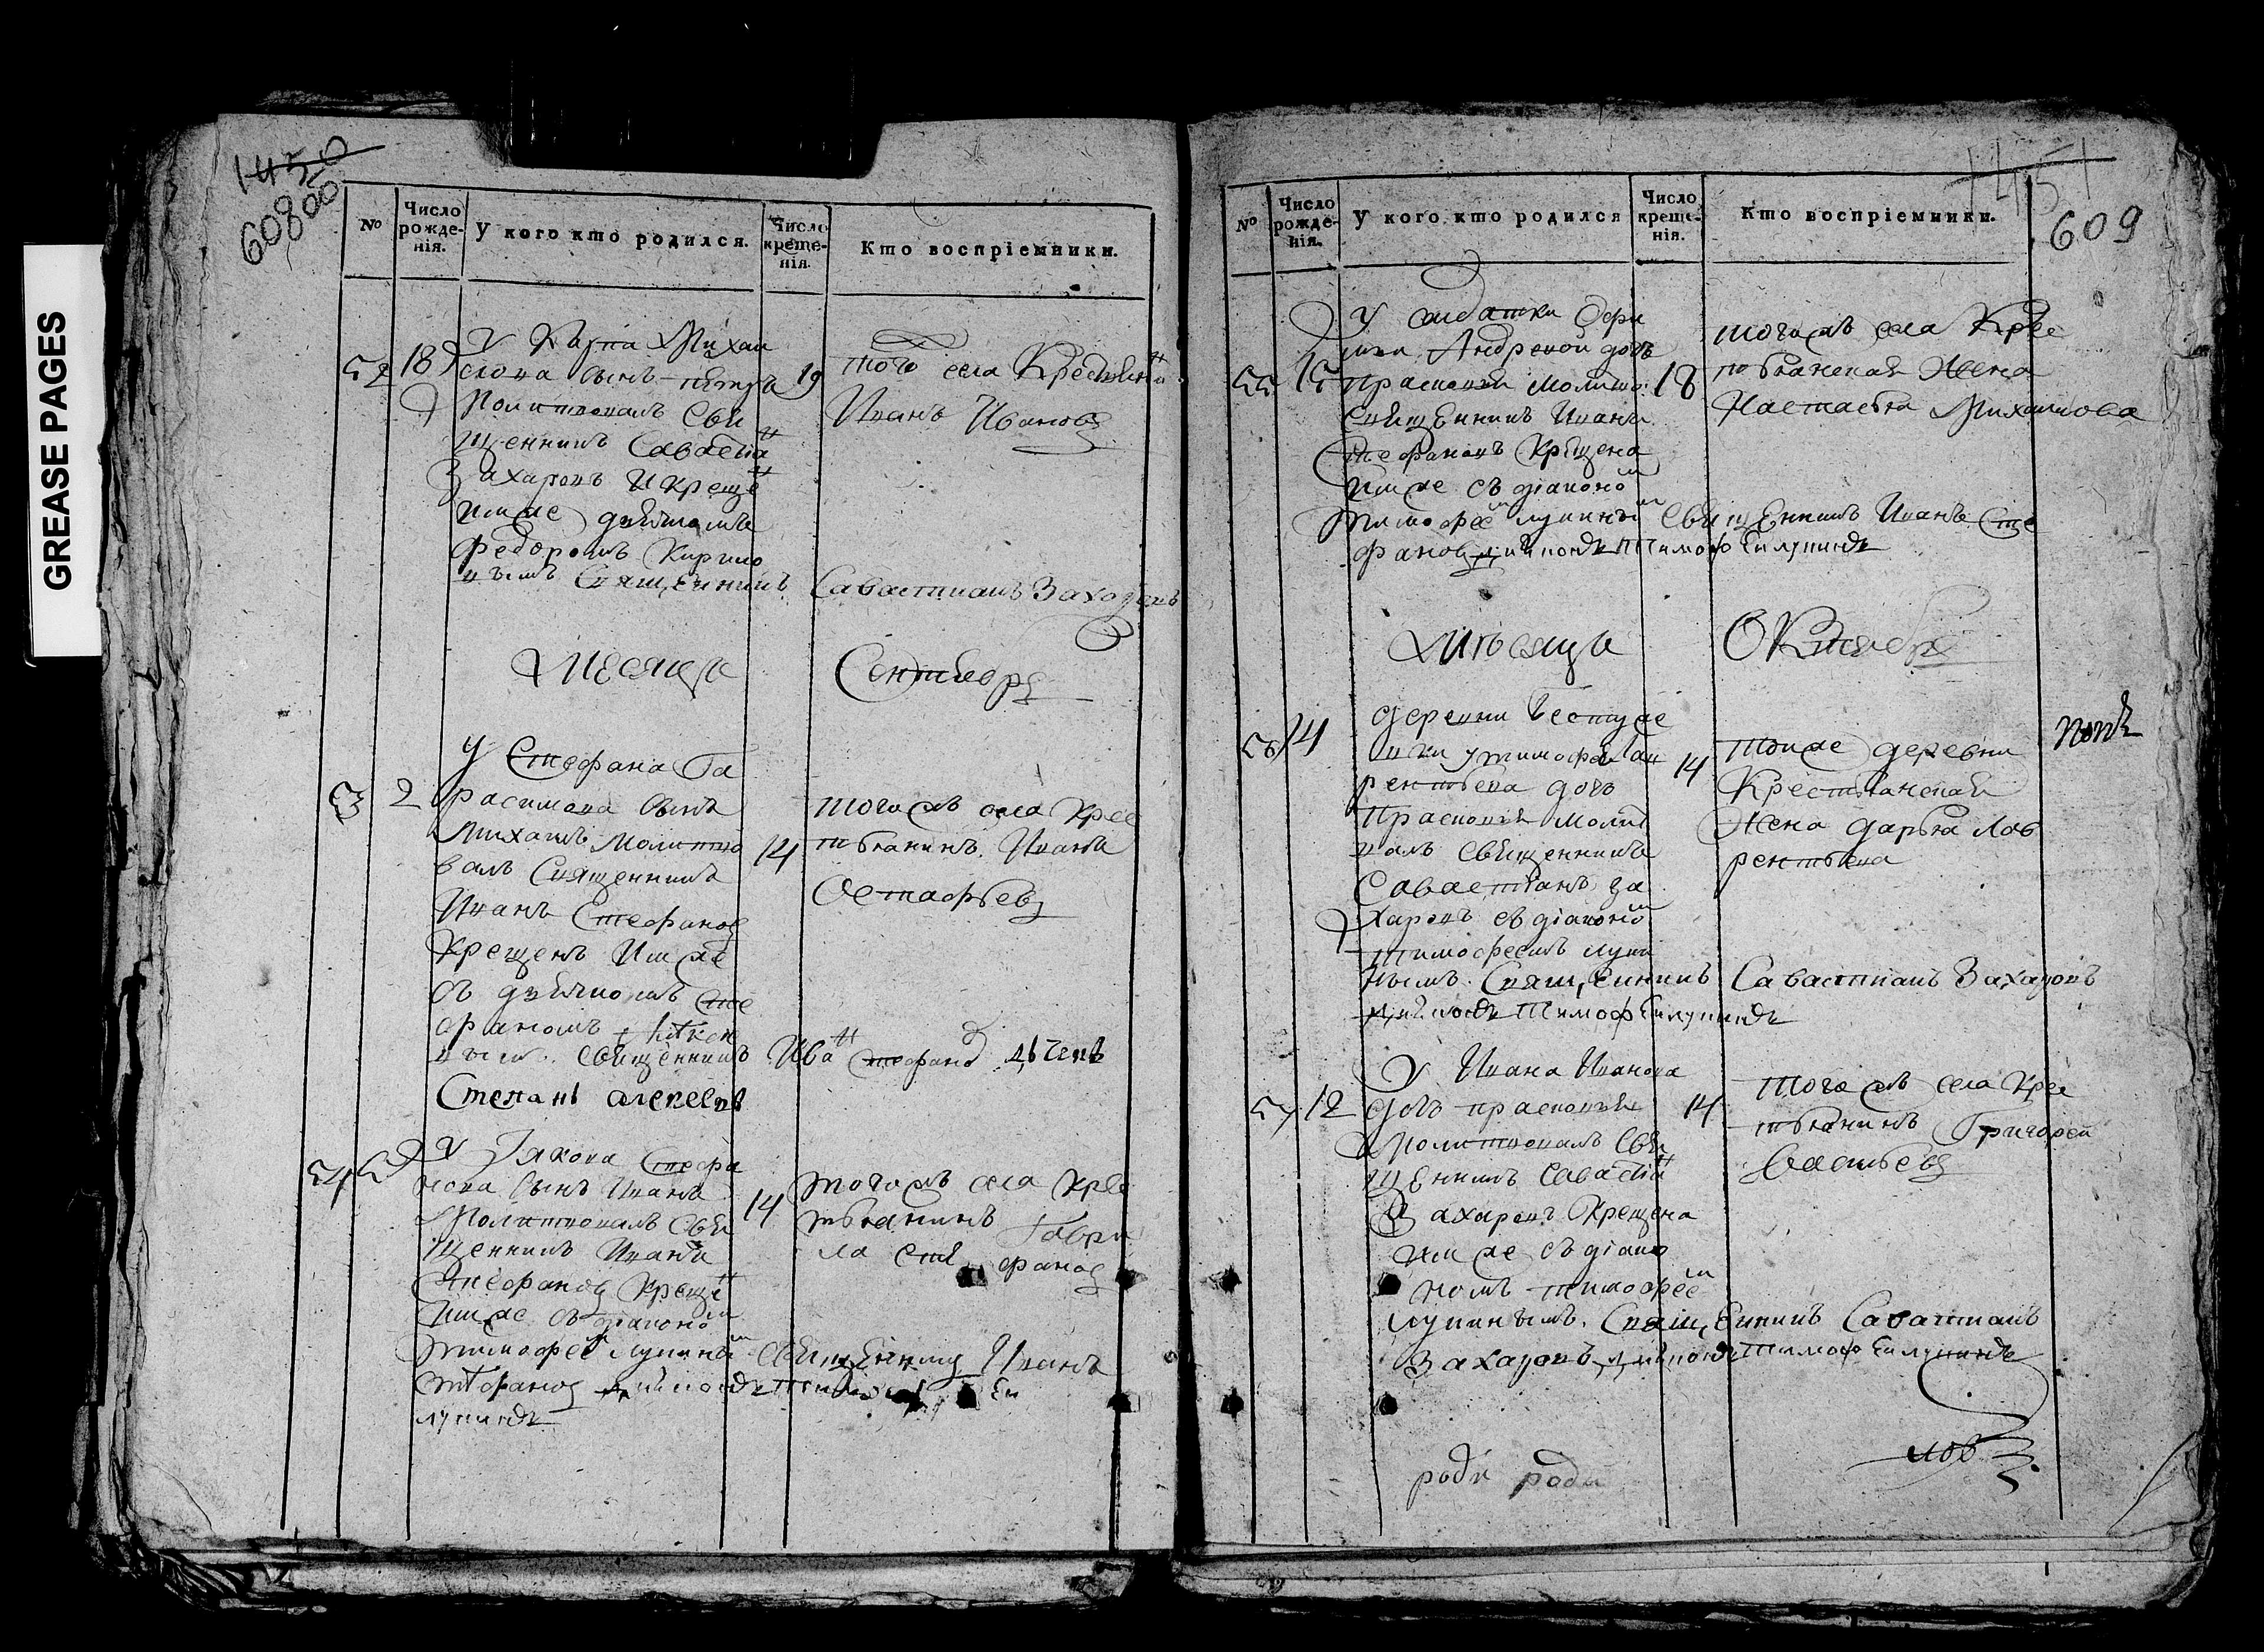 GREASE PAGES
1450
608 об
№
Число рожде-нія.
У кого кто родился.
Число креще-нія.
Кто воспріемники.
52 18 У Карпа Михаи
лова сынъ петръ 19
Молитвовалъ Свя
щенникъ Савастиа
Захаровъ и креще
имже дьячкомъ
Федоромъ Кирило
вымъ Священникъ Савастианъ Захаровъ
того села Крестьяни
Иванъ Ивановъ
Месяца Сентября
53 2 У Стефана Га
расимова сынъ
Михаилъ молитво 14
валъ Священникъ
Иванъ Стефановъ
Крещенъ Имже
съ дьячкомъ Сте
фаномъ
вымъ. Священникъ Ива Стефано дьячекъ
Степанъ алексеевъ
тогожъ села Крес
тьянинъ. Иванъ
Остафьевъ
54 5 У Якова Стефа
нова сынъ Иванъ 14
Молитвовалъ Свя
щенникъ Иванъ
Стефановъ Креще
Имже съ діаконо
Тимофее Лупины Священникъ Иванъ
Стефановъ діаконъ Тимофеи
лупинъ
тогожъ села Крес
тьянинъ Гаври
ла Сте фановъ
1451
609
№
Число рожде-нія.
У кого кто родился
Число креще-нія.
Кто воспріемники.
У солдатки Офи
Андреевой дочь
55 15 Прасковья Молитво 18
Священникъ Иванъ
Стефановъ Крещена
имже съ діаконо
Тимофее лупины Священникъ Иванъ Сте
фановъ діаконъ Тимофеи лупинъ
тогожъ села Крес
тьянская Жена
Настасья Михаилова
Мѣсяца Октября
56 14 Деревни Бестуже
вки у тимофея Лав 14
рентьева дочь
Прасковья молит
валъ Священникъ
Савастианъ За
харовъ съ діаконо
тимофеемъ лупи
нымъ. Священникъ Савастианъ Захаровъ
діаконъ Тимофеи лупинъ
Тоиже деревни
Крестьянская
Жена Дарья Лав
рентьева
57 12 У Ивана Иванова
дочь прасковья 14
Молитвовалъ Свя
щенникъ Савасти
Захаровъ Крещена
имже съ діако
номъ тимофее
лупинымъ. Священникъ Савастианъ
Захаровъ діаконъ Тимофеи лупинъ
тогожъ села Крес
тьянинъ Григореи
Васильевъ
роди роди
лов